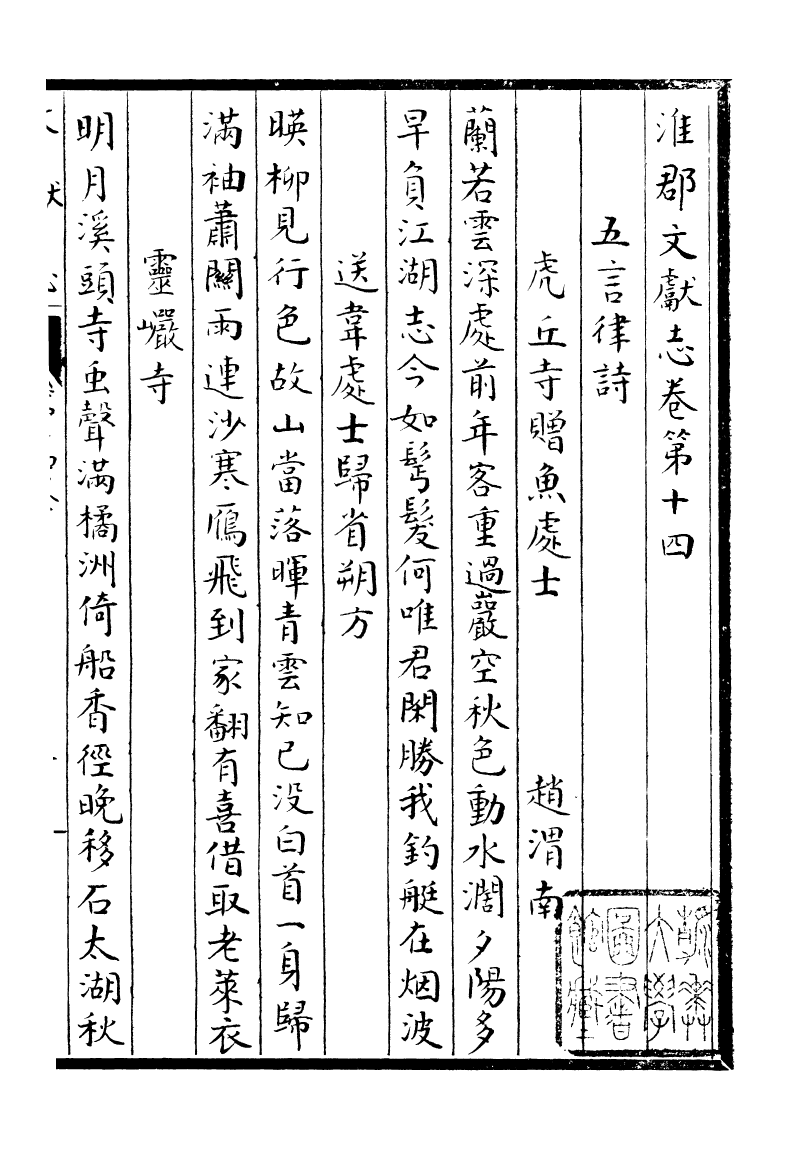 淮郡文獻志卷第十四
五言律詩
虎丘寺贈魚處士　趙渭南
蘭若雲深處前年客重過巖空秋色動水濶夕陽多
早負江湖志今如鬢髮何唯君閑勝我釣艇在烟波
送韋處士歸省朔方
暎柳見行色故山當落暉青雲知已没白首一身歸
滿袖蕭關雨連沙寒鴈飛到家翻有喜借取老萊衣
靈巖寺
明月溪頭寺虫聲滿橘洲倚船香徑晚移石太湖秋
燕京大學圖書館藏